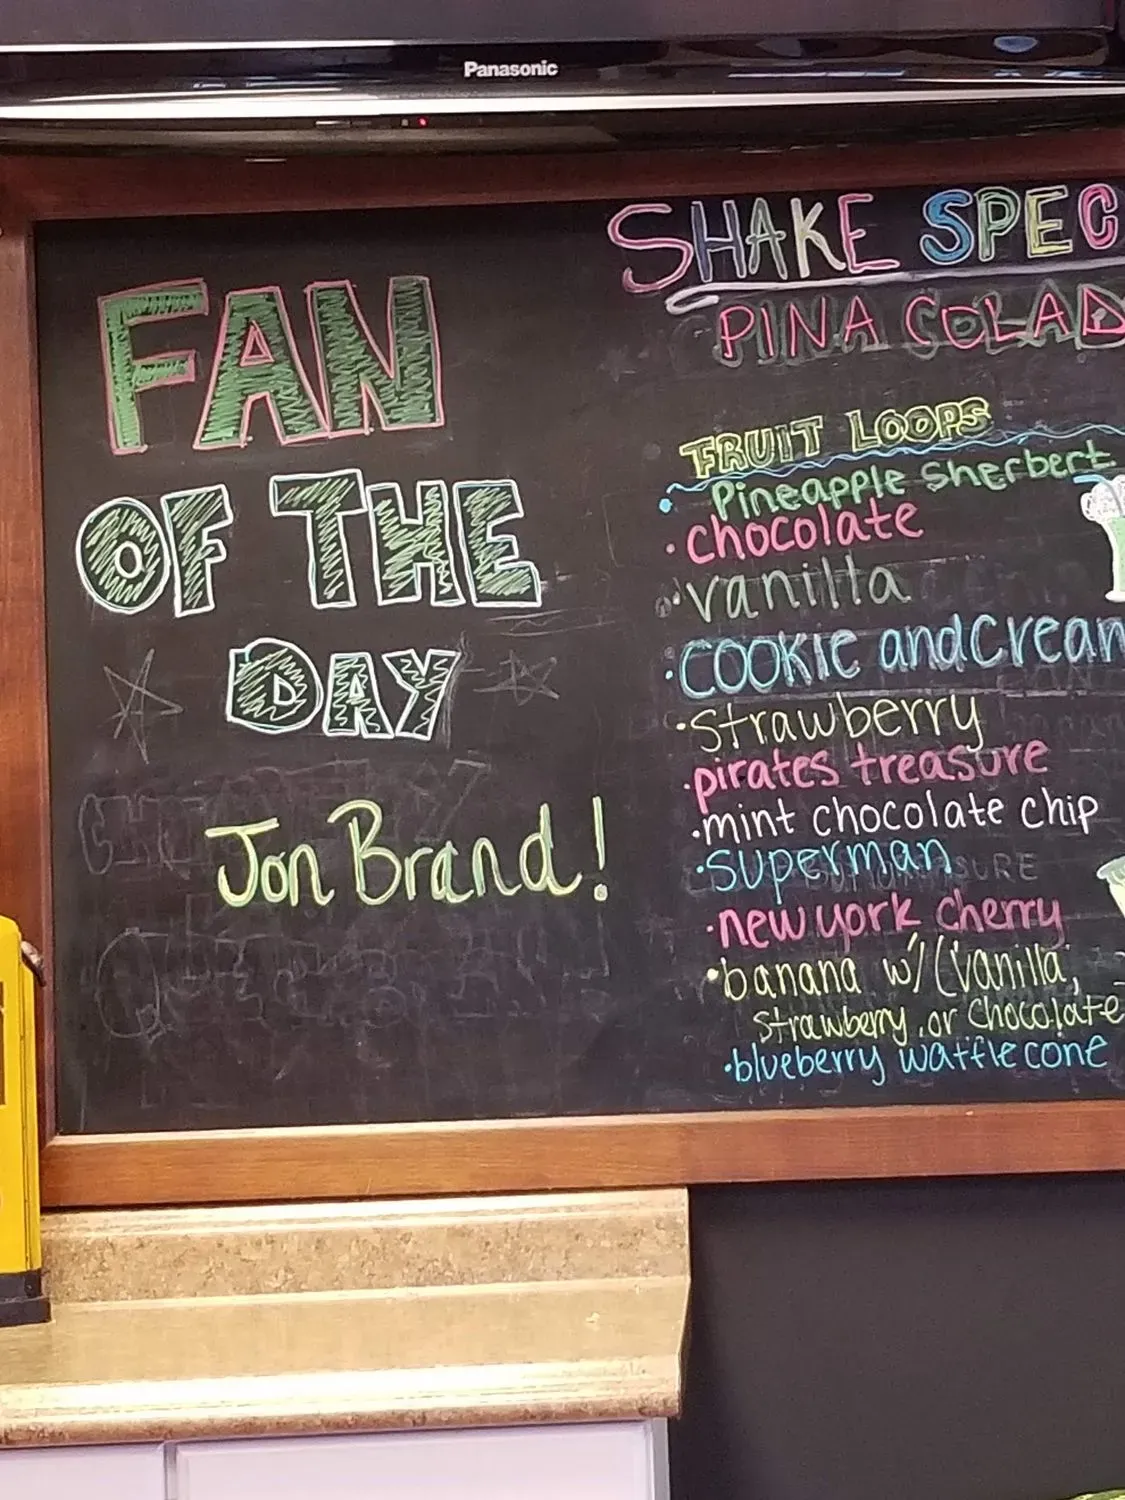 Panasonic
FAN
OF THE
DAY
Jon Brand!
SHAKE SPEC
PINA COLAD
FRUIT LOOPS
Pineapple Sherbert
• chocolate
• vanilla
• COOKIE and Cream
• strawberry
• pirates treasure
• mint chocolate chip
• superman
• new york cherry
• banana w/ (vanilla,
strawberry, or chocolate
• blueberry waffle cone